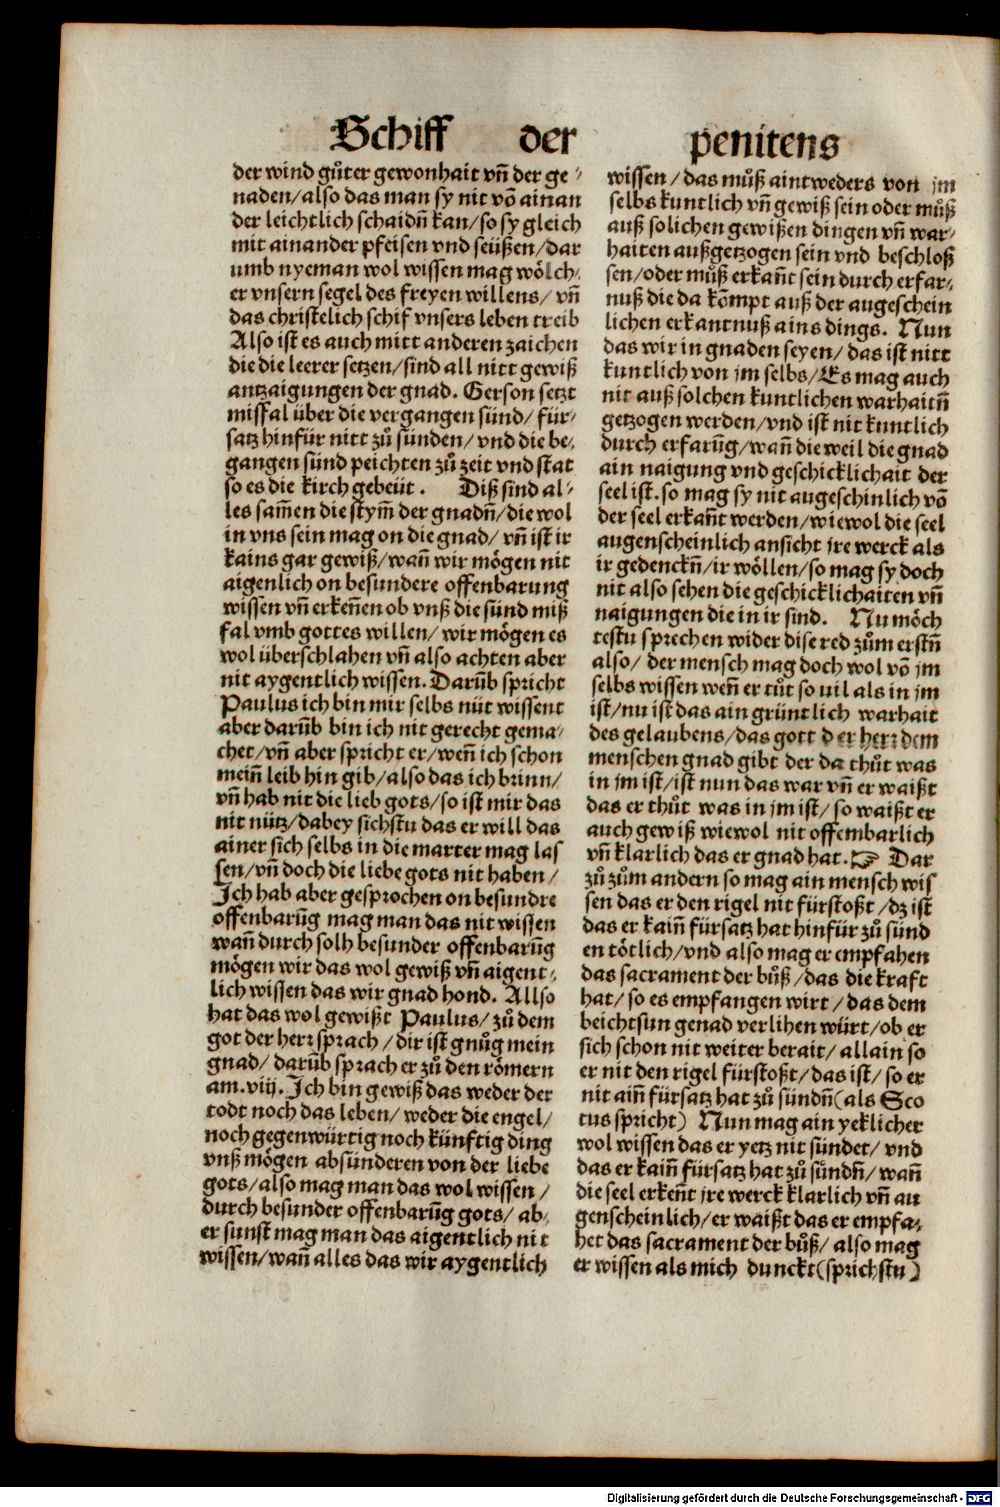 Schiff der penitens
der wind gůter gewonhait vñ der ge⸗
naden/also das man sy nit võ ainan
der leichtlich schaidñ kan/so sy gleich
mit ainander pfeisen vnd seüßen/dar
umb nyeman wol wissen mag wölch⸗
er vnsern segel des freyen willens/ vñ
das christelich schif vnsers leben treib
Also ist es auch mitt anderen zaichen
die die leerer setzen/sind all nitt gewiß
antzaigungen der gnad. Gerson setzt
missfal über die vergangen sünd/ für⸗
satz hinfür nitt zů sünden/ vnd die be⸗
gangen sünd peichten zů zeit vnd stat
so es die kirch gebeüt. Diß sind al⸗
les sam̃en die stym̃ der gnadñ/die wol
in vns sein mag on die gnad/ vñ ist ir
kains gar gewiß/wañ wir mögen nit
aigenlich on besundere offenbarung
wissen vñ erkeñen ob vnß die sünd miß
fal vmb gottes willen/ wir mögen es
wol überschlahen vñ also achten aber
nit aygentlich wissen. Darũb spricht
Paulus ich bin mir selbs nüt wissent
aber darũb bin ich nit gerecht gema⸗
chet/vñ aber spricht er/weñ ich schon
meiñ leib hin gib/also das ich brinn/
vñ hab nit die lieb gots/so ist mir das
nit nütz/dabey sichstu das er will das
ainer sich selbs in die marter mag las
sen/vñ doch die liebe gots nit haben/
Ich hab aber gesprochen on besundre
offenbarũg mag man das nit wissen
wañ durch solh besunder offenbarũg
mögen wir das wol gewiß vñ aigent⸗
lich wissen das wir gnad hond. Allso
hat das wol gewißt Paulus/ zů dem
got der herr sprach/dir ist gnůg mein
gnad/ darũb sprach er zů den römern
am.viij. Ich bin gewiß das weder der
todt noch das leben/ weder die engel/
noch gegenwürtig noch künftig ding
vnß mögen absünderen von der liebe
gots/also mag man das wol wissen/
durch besunder offenbarũg gots/ ab⸗
er sunst mag man das aigentlich nit
wissen/wañ alles das wir aygentlich
wissen/das můß aintweders von jm
selbs kuntlich vñ gewiß sein oder můß
auß solichen gewißen dingen vñ war⸗
haiten außgetzogen sein vnd beschloß
sen/oder můß erkañt sein durch erfar⸗
nuß die da kõmpt auß der augeschein
lichen erkantnuß ains dings. Nun
das wir in gnaden seyen/das ist nitt
kuntlich von jm selbs/Es mag auch
nit auß solchen kuntlichen warhaitñ
getzogen werden/vnd ist nit kuntlich
durch erfarũg/wañ die weil die gnad
ain naigung vnd geschicklichait der
seel ist.so mag sy nit augeschinlich võ
der seel erkañt werden/wiewol die seel
augenscheinlich ansicht jre werck als
ir gedenckñ/ir wöllen/so mag sy doch
nit also sehen die geschicklichaiten vñ
naigungen die in ir sind. Nu möch
testu sprechen wider dise red zům erstñ
also/ der mensch mag doch wol võ jm
selbs wissen weñ er tůt so uil als in jm
ist/nu ist das ain grüntlich warhait
des gelaubens/das gott der herr dem
menschen gnad gibt der da thůt was
in jm ist/ist nun das war vñ er waißt
das er thůt was in jm ist/so waißt er
auch gewiß wiewol nit offembarlich
vñ klarlich das er gnad hat.☞ Dar
zů zům andern so mag ain mensch wis
sen das er den rigel nit fürstoßt/dz ist
das er kaiñ fürsatz hat hinfür zů sünd
en tötlich/vnd also mag er empfahen
das sacrament der bůß/das die kraft
hat/so es empfangen wirt/das dem
beichtsun genad verlihen würt/ob er
sich schon nit weiter berait/allain so
er nit den rigel fürstoßt/das ist/so er
nit aiñ fürsatz hat zů sündñ(als Sco
tus spricht) Nun mag ain yeklicher
wol wissen das er yetz nit sündet/ vnd
das er kaiñ fürsatz hat zů sündñ/ wañ
die seel erkeñt jre werck klarlich vñ au
genscheinlich/er waißt das er empfa⸗
het das sacrament der bůß/also mag
er wissen als mich dunckt(sprichstu)
Digitalisierung gefördert durch die Deutsche Forschungsgemeinschaft - DFG